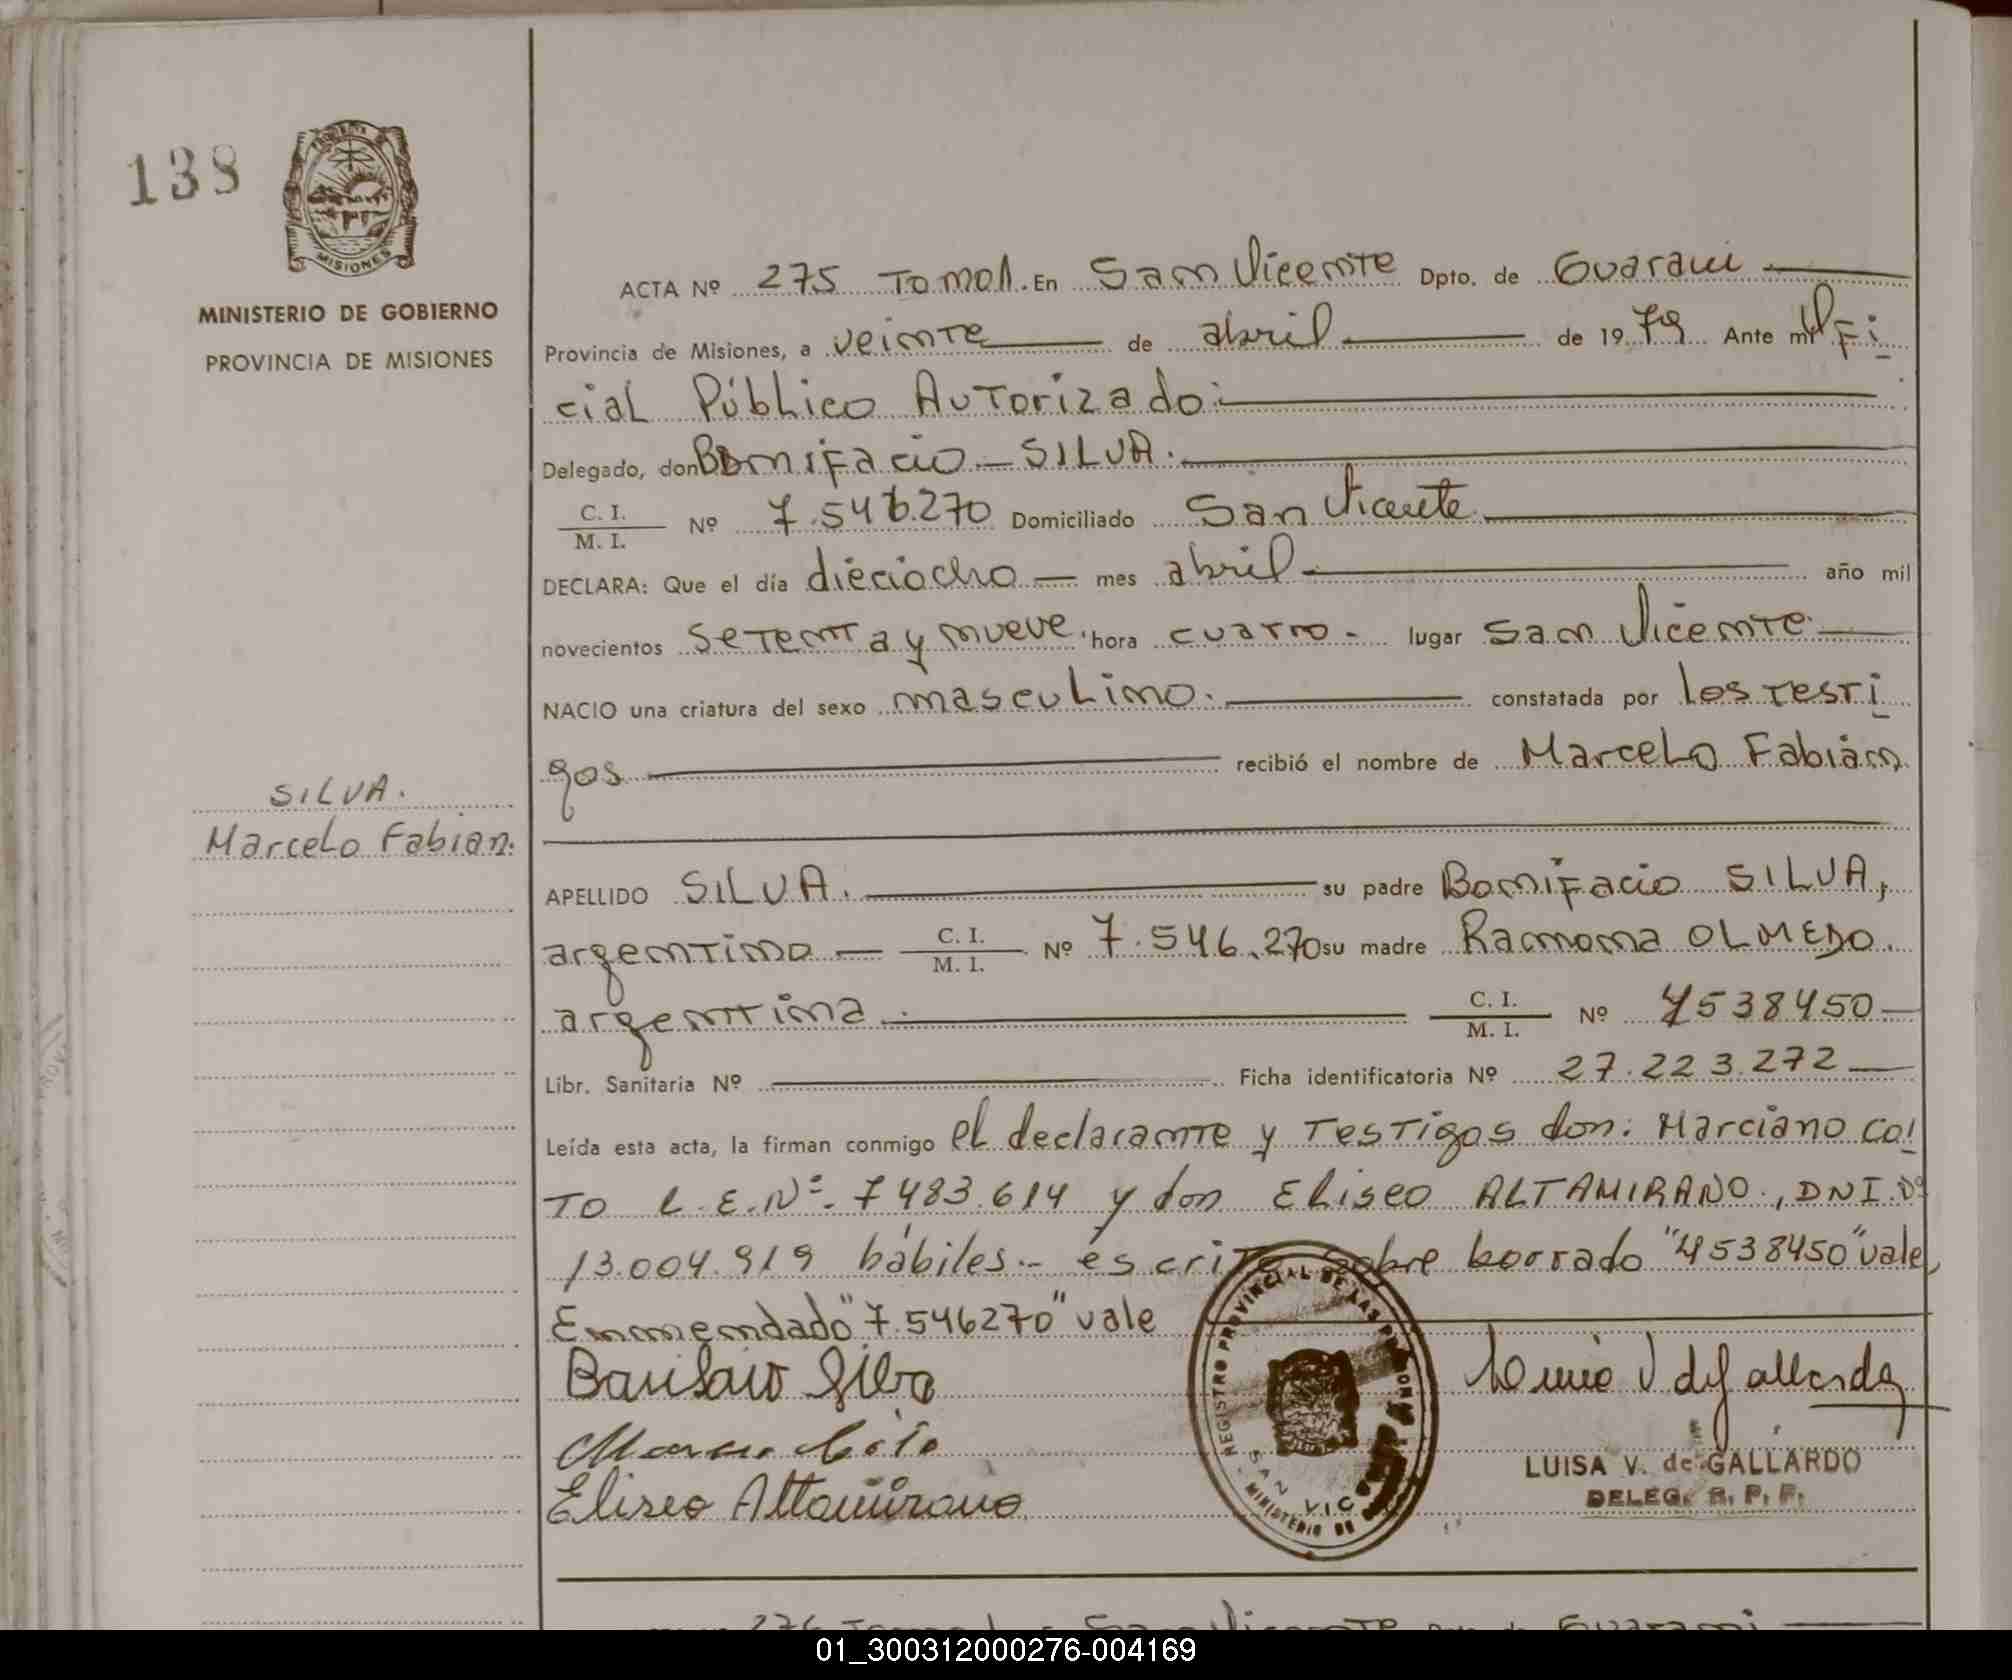 138
MISIONES
MINISTERIO DE GOBIERNO
PROVINCIA DE MISIONES
ACTA Nº 275 Tomo I. En San Vicente Dpto. de Guaraní
Provincia de Misiones, a veinte de abril de 1979 Ante mí Ofi
cial Público Autorizado:
Delegado, don Bonifacio SILVA.
C. I.
M. I. Nº 7.546.270 Domiciliado San Vicente
DECLARA: Que el día dieciocho mes abril año mil
novecientos setenta y nueve. hora cuatro lugar San Vicente
NACIO una criatura del sexo masculino. constatada por los testi
gos recibió el nombre de Marcelo Fabián
SILVA.
Marcelo Fabian.
APELLIDO SILVA. su padre Bonifacio SILVA,
argentino C. I.
M. I. Nº 7.546.270 su madre Ramona OLMEDO.
argentina C. I.
M. I. Nº 4538450
Libr. Sanitaria Nº Ficha identificatoria Nº 27.223.272
Leída esta acta, la firman conmigo el declarante y testigos don: Marciano Coi
TO L.E.Nº 7483.614 y don Eliseo ALTAMIRANO, DNI.Nº
13.004.919 hábiles.- escrito sobre borrado "4538450" vale,
Enmendado "7.546270" vale
Silva
Eliseo Altamirano
REGISTRO PROVINCIAL DE LAS PERSONAS
MINISTERIO DE
SAN VIC
LUISA V. de GALLARDO
DELEG. R. P. P.
276 San Vicente Guaraní
01_300312000276-004169